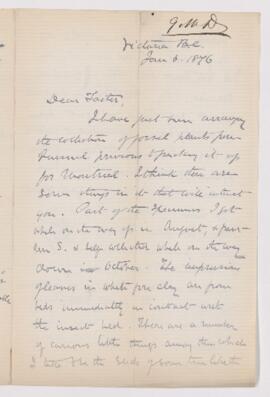 G.M.D.
Victoria B.C.
Jan 6. 1876
Dear Father,
I have just been arranging
the collection of fossil plants from
Quesnel previous to packing it up
for Montreal. I think there are
some things in it that will interest
you. Part of the specimens I got
while on the way up in August, & part
were S. & Self collected while on the way
down in October. The impressions
of leaves in white fire clay are from
beds immediately in contact with
the insect bed. There are a number
of curious little things among them which
I take to be the seeds of some tree like the